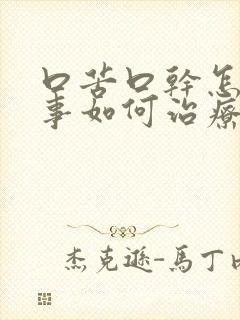 口苦口幹怎
事如何治療
杰克遜-馬丁